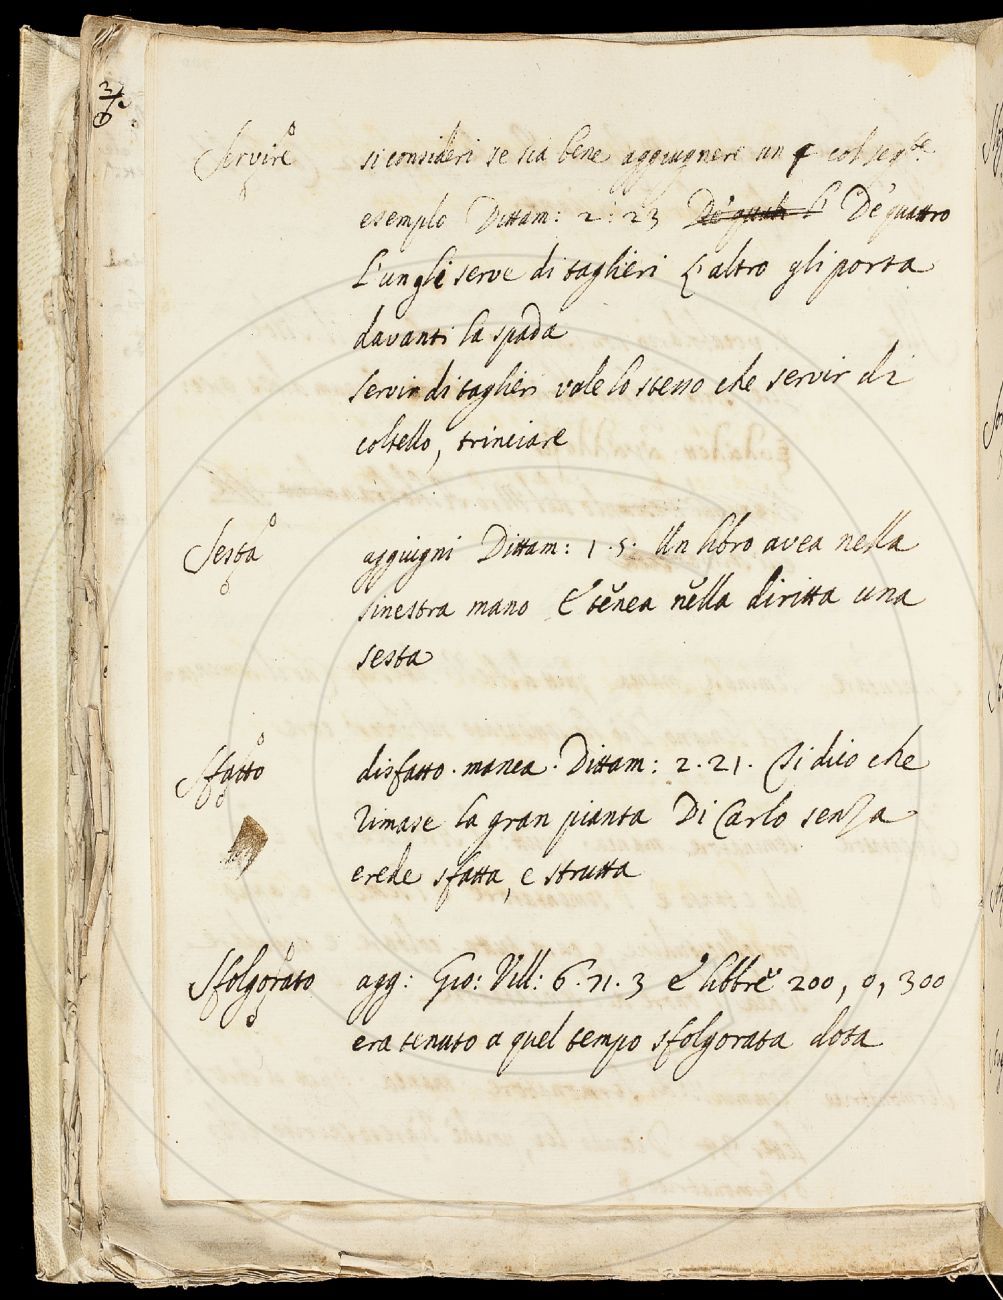 Servire si consideri se sia bene aggiugnere un § col seg.te
esemplo Dittam: 2. 23 De' quattro
L'un gli serve di taglieri L'altro gli porta
davanti la spada
Servir di taglieri vale lo stesso che servir di
coltello, trinciare
Sesta aggiugni Dittam: 1. 5. Un libro avea nella
sinestra mano E tenea nella diritta una
sesta
Sfatto disfatto. manca. Dittam: 2. 21. Si dico che
rimase la gran pianta Di Carlo senza
erede sfatta, e strutta
Sfolgorato agg: Gio: Vill: 6. 71. 3 E libbre 200, o, 300
era tenuto a quel tempo sfolgorata dota